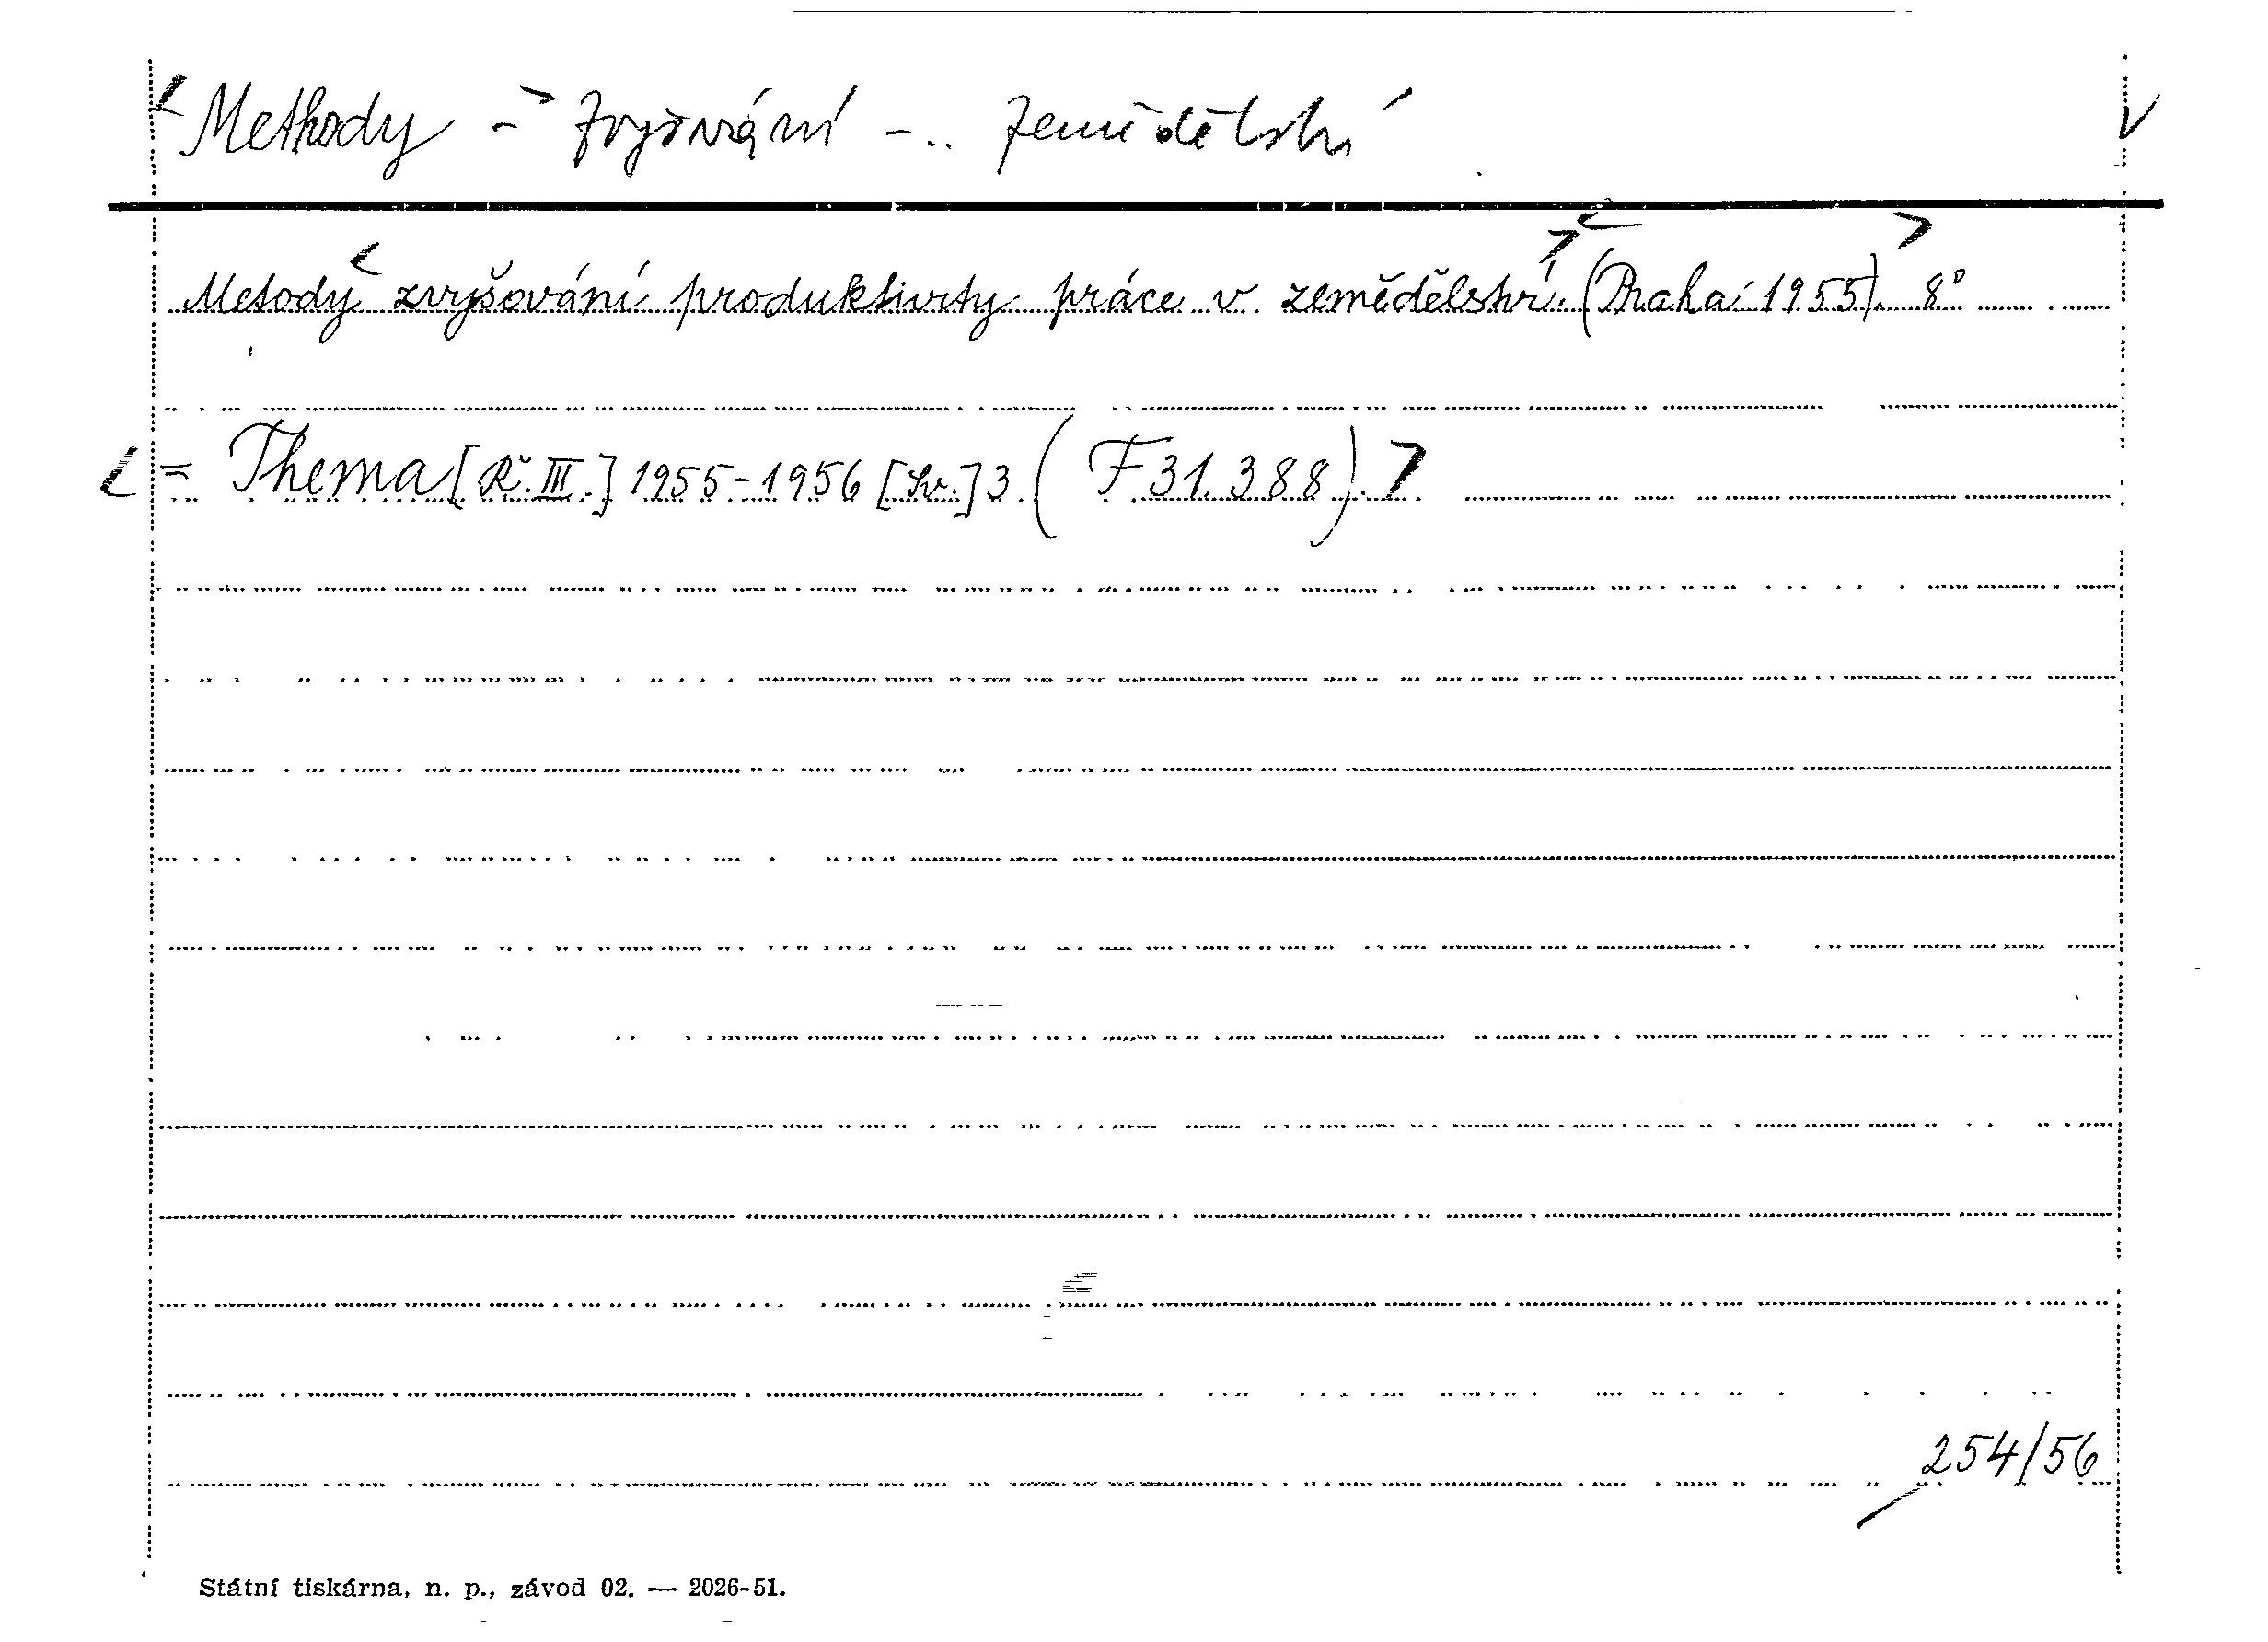 Methody - zvyšování - .. zemědělství
Metody zvyšování produktivity práce v zemědělství. (Praha 1955). 8°
= Thema [Ř. III.] 1955-1956 [sv.] 3 (F 31.388)
254/56
Státní tiskárna, n. p., závod 02. — 2026-51.